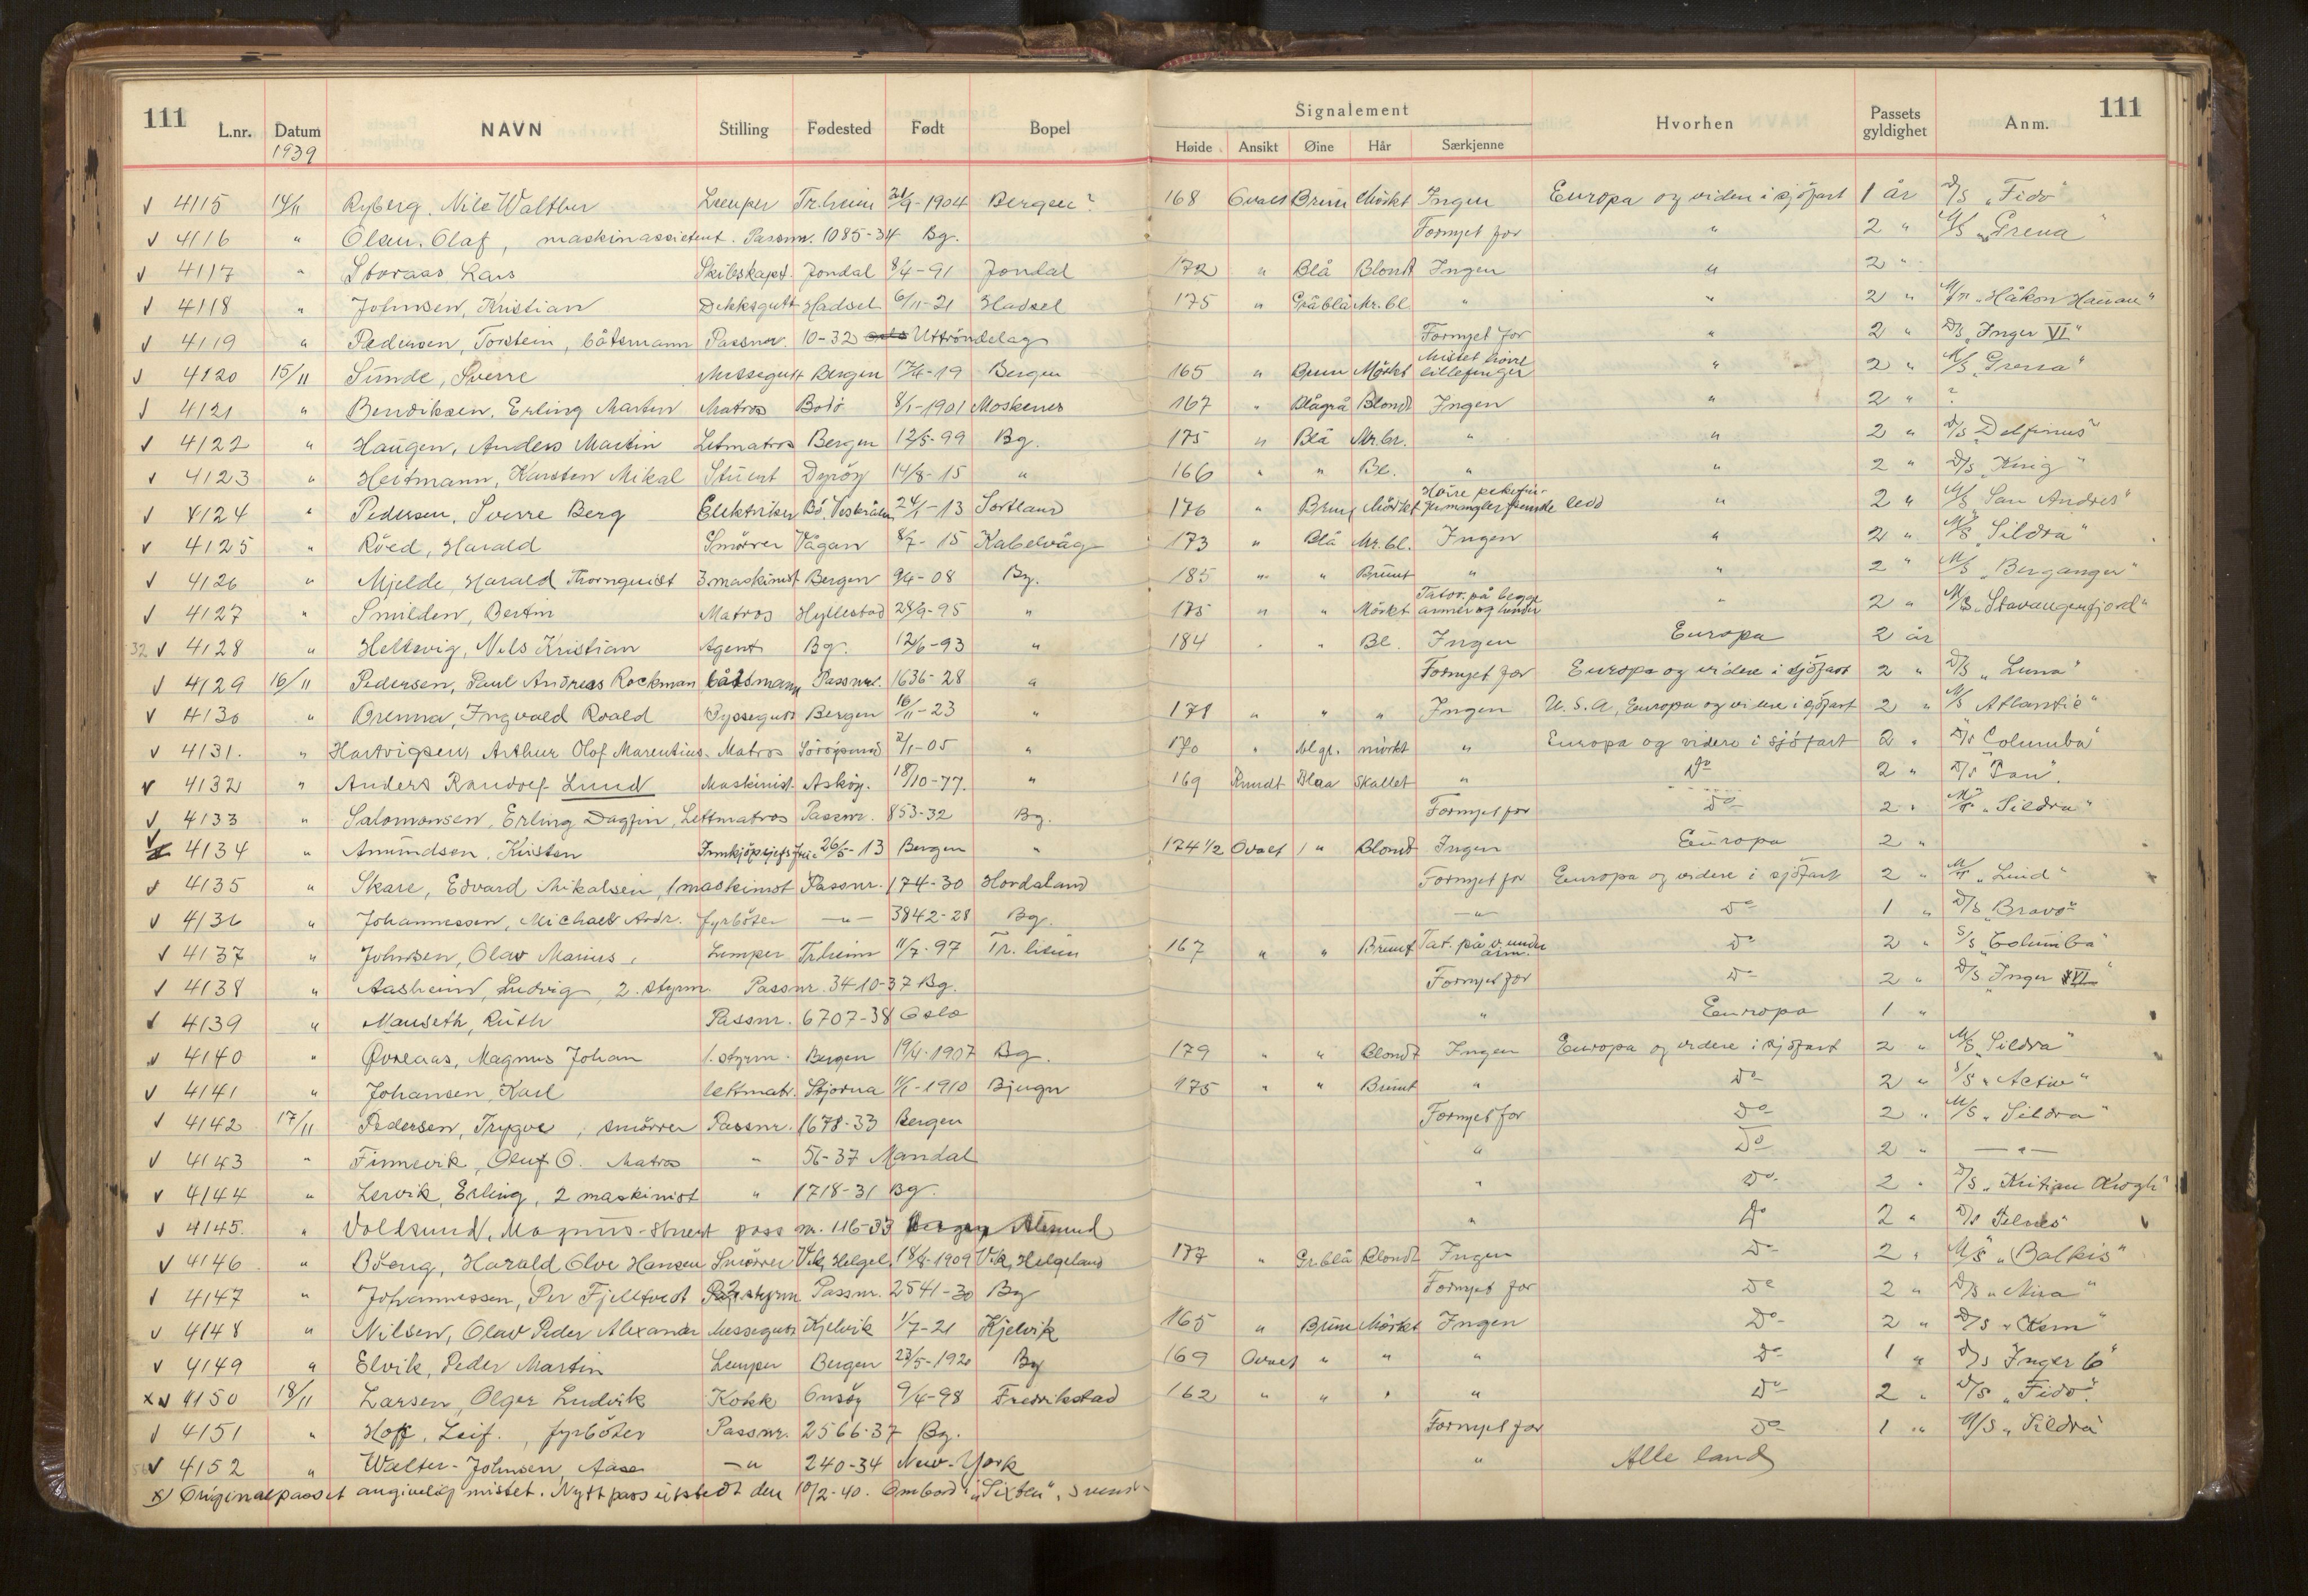 111 Signalement 111
L.nr. Datum NAVN Stilling Fødested Født Bopel Høide Ansikt Øine Hår Særkjenne Hvorhen Passets gyldighet Anm.
1939
4115 14/11 Ryberg, Nils Walther Lemper Tr.heim 21/9-1904 Bergen? 168 Ovalt Brune Mörkt Ingen Europa og videre i sjöfart 1 år D/S „Fido"
4116 " Olsen, Olaf, maskinassistent. Passnr. 1085-34 Bg. Fornyet for " 2 " M/S „Grena"
4117 " Storaas Lars Skibskapt. Jondal 8/4-91 Jondal 172 " Blå Blondt Ingen " 2 "
4118 " Johnsen, Kristian Dekksgutt Hadsel 6/11-21 Hadsel 175 " Gråblå Mr.bl. " " 2 " „Håkon Hauan"
4119 " Pedersen, Torstein, båtsmann Passnr. 10-32 Uttröndelag Fornyet for " 2 " D/S „Inger VI"
4120 15/11 Sunde, Sverre Messegutt Bergen 17/4-19 Bergen 165 " Brune Mörkt Mistet höire lillefinger " 2 " M/S „Grena"
4121 " Bendiksen, Erling Martin Matros Bodö 8/1-1901 Moskenes 167 " Blågrå Blondt Ingen " 2 " ?
4122 " Haugen, Anders Martin Letmatros Bergen 12/5-99 Bg. 175 " Blå Mr.br. " " 2 " D/S „Delfinus"
4123 " Heitmann, Karsten Mikal Stuert Dyröy 14/8-15 " 166 " " Bl. " " 2 " D/S „Krig"
4124 " Pedersen, Sverre Berg Elektriker Bö, Vesterålen 24/1-13 Sortland 176 " Brune Mörkt Höire pekefinger mangler fremste ledd " 2 " M/S „San Andres"
4125 " Röed, Harald Smörer Vågan 8/7-15 Kabelvåg 173 " Blå Mr.bl. Ingen " 2 " M/S „Sildra"
4126 " Mjelde, Harald Thornquist 3.maskinist Bergen 9/4-08 Bg. 185 " " Brunt " " 2 " M/S „Berganger"
4127 " Smilden, Bertin Matros Hyllestad 28/9-95 " 175 " " Mörkt Tatov. på begge armer og hender " 2 " M/S „Stavangerfjord"
32 4128 " Heltsvig, Nils Kristian Agent Bg. 12/6-93 " 184 " " Bl. Ingen Europa 2 år
4129 16/11 Pedersen, Paul Andreas Rockman båtsmann Passnr. 1636-28 " Fornyet for Europa og videre i sjöfart 2 " D/S „Luna"
4130 " Grenna, Ingvald Roald Byssegutt Bergen 16/11-23 " 171 " " " Ingen U.S.A, Europa og videre i sjöfart 2 " M/S Atlantic"
4131. " Hartvigsen, Arthur Olof Marentius. Matros 2/1-05 " 170 " blgr. mörkt " Europa og videre i sjöfart 2 " Columba"
4132 " Anders Randolf Lund Maskinist. Asköy. 18/10-77. " 169 Rundt Blaa skallet " Do 2 " D/S "Pan".
4133 " Salomonsen, Erling Dagfin, Lettmatros Passnr. 853-32 Bg. Fornyet for Do 2 " „Sildra"
4134 " Amundsen, Kirsten Innkjöpsjefs frue 26/5-13 Bergen " 174½ Ovalt " Blondt Ingen Europa 2 "
4135 " Skare, Edvard Mikalsen, 1 maskinist Passnr. 174-30 Hordaland Fornyet for Europa og videre i sjöfart 2 " „Lind"
4136 " Johannessen, Michael Andr. fyrböter -"- 3842-28 Bg. -"- Do 1 " D/S „Bravo"
4137 " Johnsen, Olav Marius, Lemper Tr.heim 11/7-97 Tr.heim 167 " " Brunt Tat. på v. under arm. Do 2 " S/S „Columba"
4138 " Aasheim, Ludvig, 2. styrm. Passnr. 3410-37 Bg. Fornyet for Do 2 " D/S „Inger VI"
4139 " Mauseth, Ruth Passnr. 6707-38 Oslo " Europa 1 "
4140 " Øvreaas, Magnus Johan 1. styrm. Bergen 19/4-1907 Bg. 179 " " Blondt Ingen Europa og videre i sjöfart 2 " M/S „Sildra"
4141 " Johansen Karl lettmatr. Stjorna 1/1-1910 Bjugn 175 " " Brunt " Do 2 " S/S „Activ"
4142 17/11 Pedersen, Trygve, smörer Passnr. 1678-33 Bergen Fornyet for Do 2 " M/S „Sildra"
4143 " Finnevik, Oluf O. Matros " 56-37 Mandal " Do 2 " -"-
4144 " Lervik, Erling, 2 maskinist " 1718-31 Bg. " Do 2 " D/S „Kristian Krogh"
4145. " Voldsund, Magnus - Stuert pass nr. 116-33 Ålesund " Do 2 " D/S Telnes
4146 " Böeng, Harald Olve Hansen Smörer Vik, Helgel. 18/8-1909 Vik, Helgeland 177 " Gr.blå Blondt Ingen Do 2 " M/S „Balkis"
4147 " Johannessen, Per Fjelltvedt 2. styrm Passnr. 2541-30 Bg Fornyet for Do 2 " D/S „Mira"
4148 " Nilsen, Olav Peder Alexander Messegutt Kjelvik 1/7-21 Kjelvik 165 " Brune Mörkt Ingen Do 2 " D/S „Kem"
4149 " Elvik, Peder Martin Lemper Bergen 23/5-1920 Bg 169 Ovalt " " " Do 1 " D/S Inger 6"
x 4150 18/11 Larsen, Olger Ludvik Kokk Onsöy 9/4-98 Fredrikstad 162 " " " " Do 2 " D/S „Fido".
4151 " Hoff, Leif., fyrböter Passnr. 2566-37 Bg. Fornyet for Do 1 " M/S „Sildra"
4152 " Walter-Johnsen, Aase -"- 240-34 New-York " Alle land
x) Originalpasset angivelig mistet. Nytt pass utstedt den 10/2-40. Ombord i „Sixten",